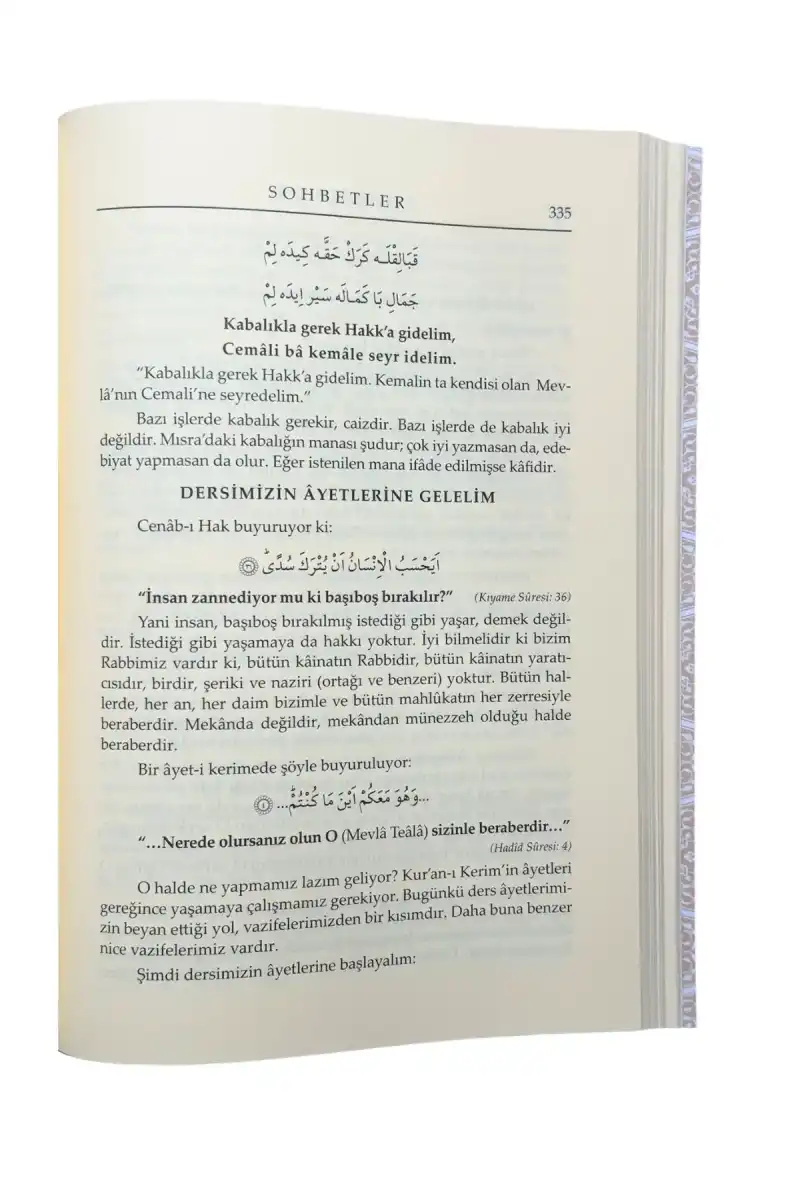 SOHBETLER
335
قَبَالِقْلَـه كَرَكْ حَقَّه كِيدَه لِمْ
جَمَالِ بَا كَمَالَه سَيْر اِيدَه لِمْ
Kabalıkla gerek Hakk'a gidelim,
Cemâli bâ kemâle seyr idelim.
"Kabalıkla gerek Hakk'a gidelim. Kemalin ta kendisi olan Mev-
lâ'nın Cemali'ne seyredelim."
Bazı işlerde kabalık gerekir, caizdir. Bazı işlerde de kabalık iyi
değildir. Mısra'daki kabalığın manası şudur; çok iyi yazmasan da, ede-
biyat yapmasan da olur. Eğer istenilen mana ifâde edilmişse kâfidir.
DERSİMİZİN ÂYETLERİNE GELELİM
Cenâb-ı Hak buyuruyor ki:
اَيَحْسَبُ الْاِنْسَانُ اَنْ يُتْرَكَ سُدًىۜ ﴿٣٦﴾
"İnsan zannediyor mu ki başıboş bırakılır?" (Kıyame Sûresi: 36)
Yani insan, başıboş bırakılmış istediği gibi yaşar, demek değil-
dir. İstediği gibi yaşamaya da hakkı yoktur. İyi bilmelidir ki bizim
Rabbimiz vardır ki, bütün kâinatın Rabbidir, bütün kâinatın yaratı-
cısıdır, birdir, şeriki ve naziri (ortağı ve benzeri) yoktur. Bütün hal-
lerde, her an, her daim bizimle ve bütün mahlûkatın her zerresiyle
beraberdir. Mekânda değildir, mekândan münezzeh olduğu halde
beraberdir.
Bir âyet-i kerimede şöyle buyuruluyor:
...وَهُوَ مَعَكُمْ اَيْنَ مَا كُنْتُمْۜ... ﴿٤﴾
"...Nerede olursanız olun O (Mevlâ Teâlâ) sizinle beraberdir..."
(Hadîd Sûresi: 4)
O halde ne yapmamız lazım geliyor? Kur'an-ı Kerim'in âyetleri
gereğince yaşamaya çalışmamız gerekiyor. Bugünkü ders âyetlerimi-
zin beyan ettiği yol, vazifelerimizden bir kısımdır. Daha buna benzer
nice vazifelerimiz vardır.
Şimdi dersimizin âyetlerine başlayalım: